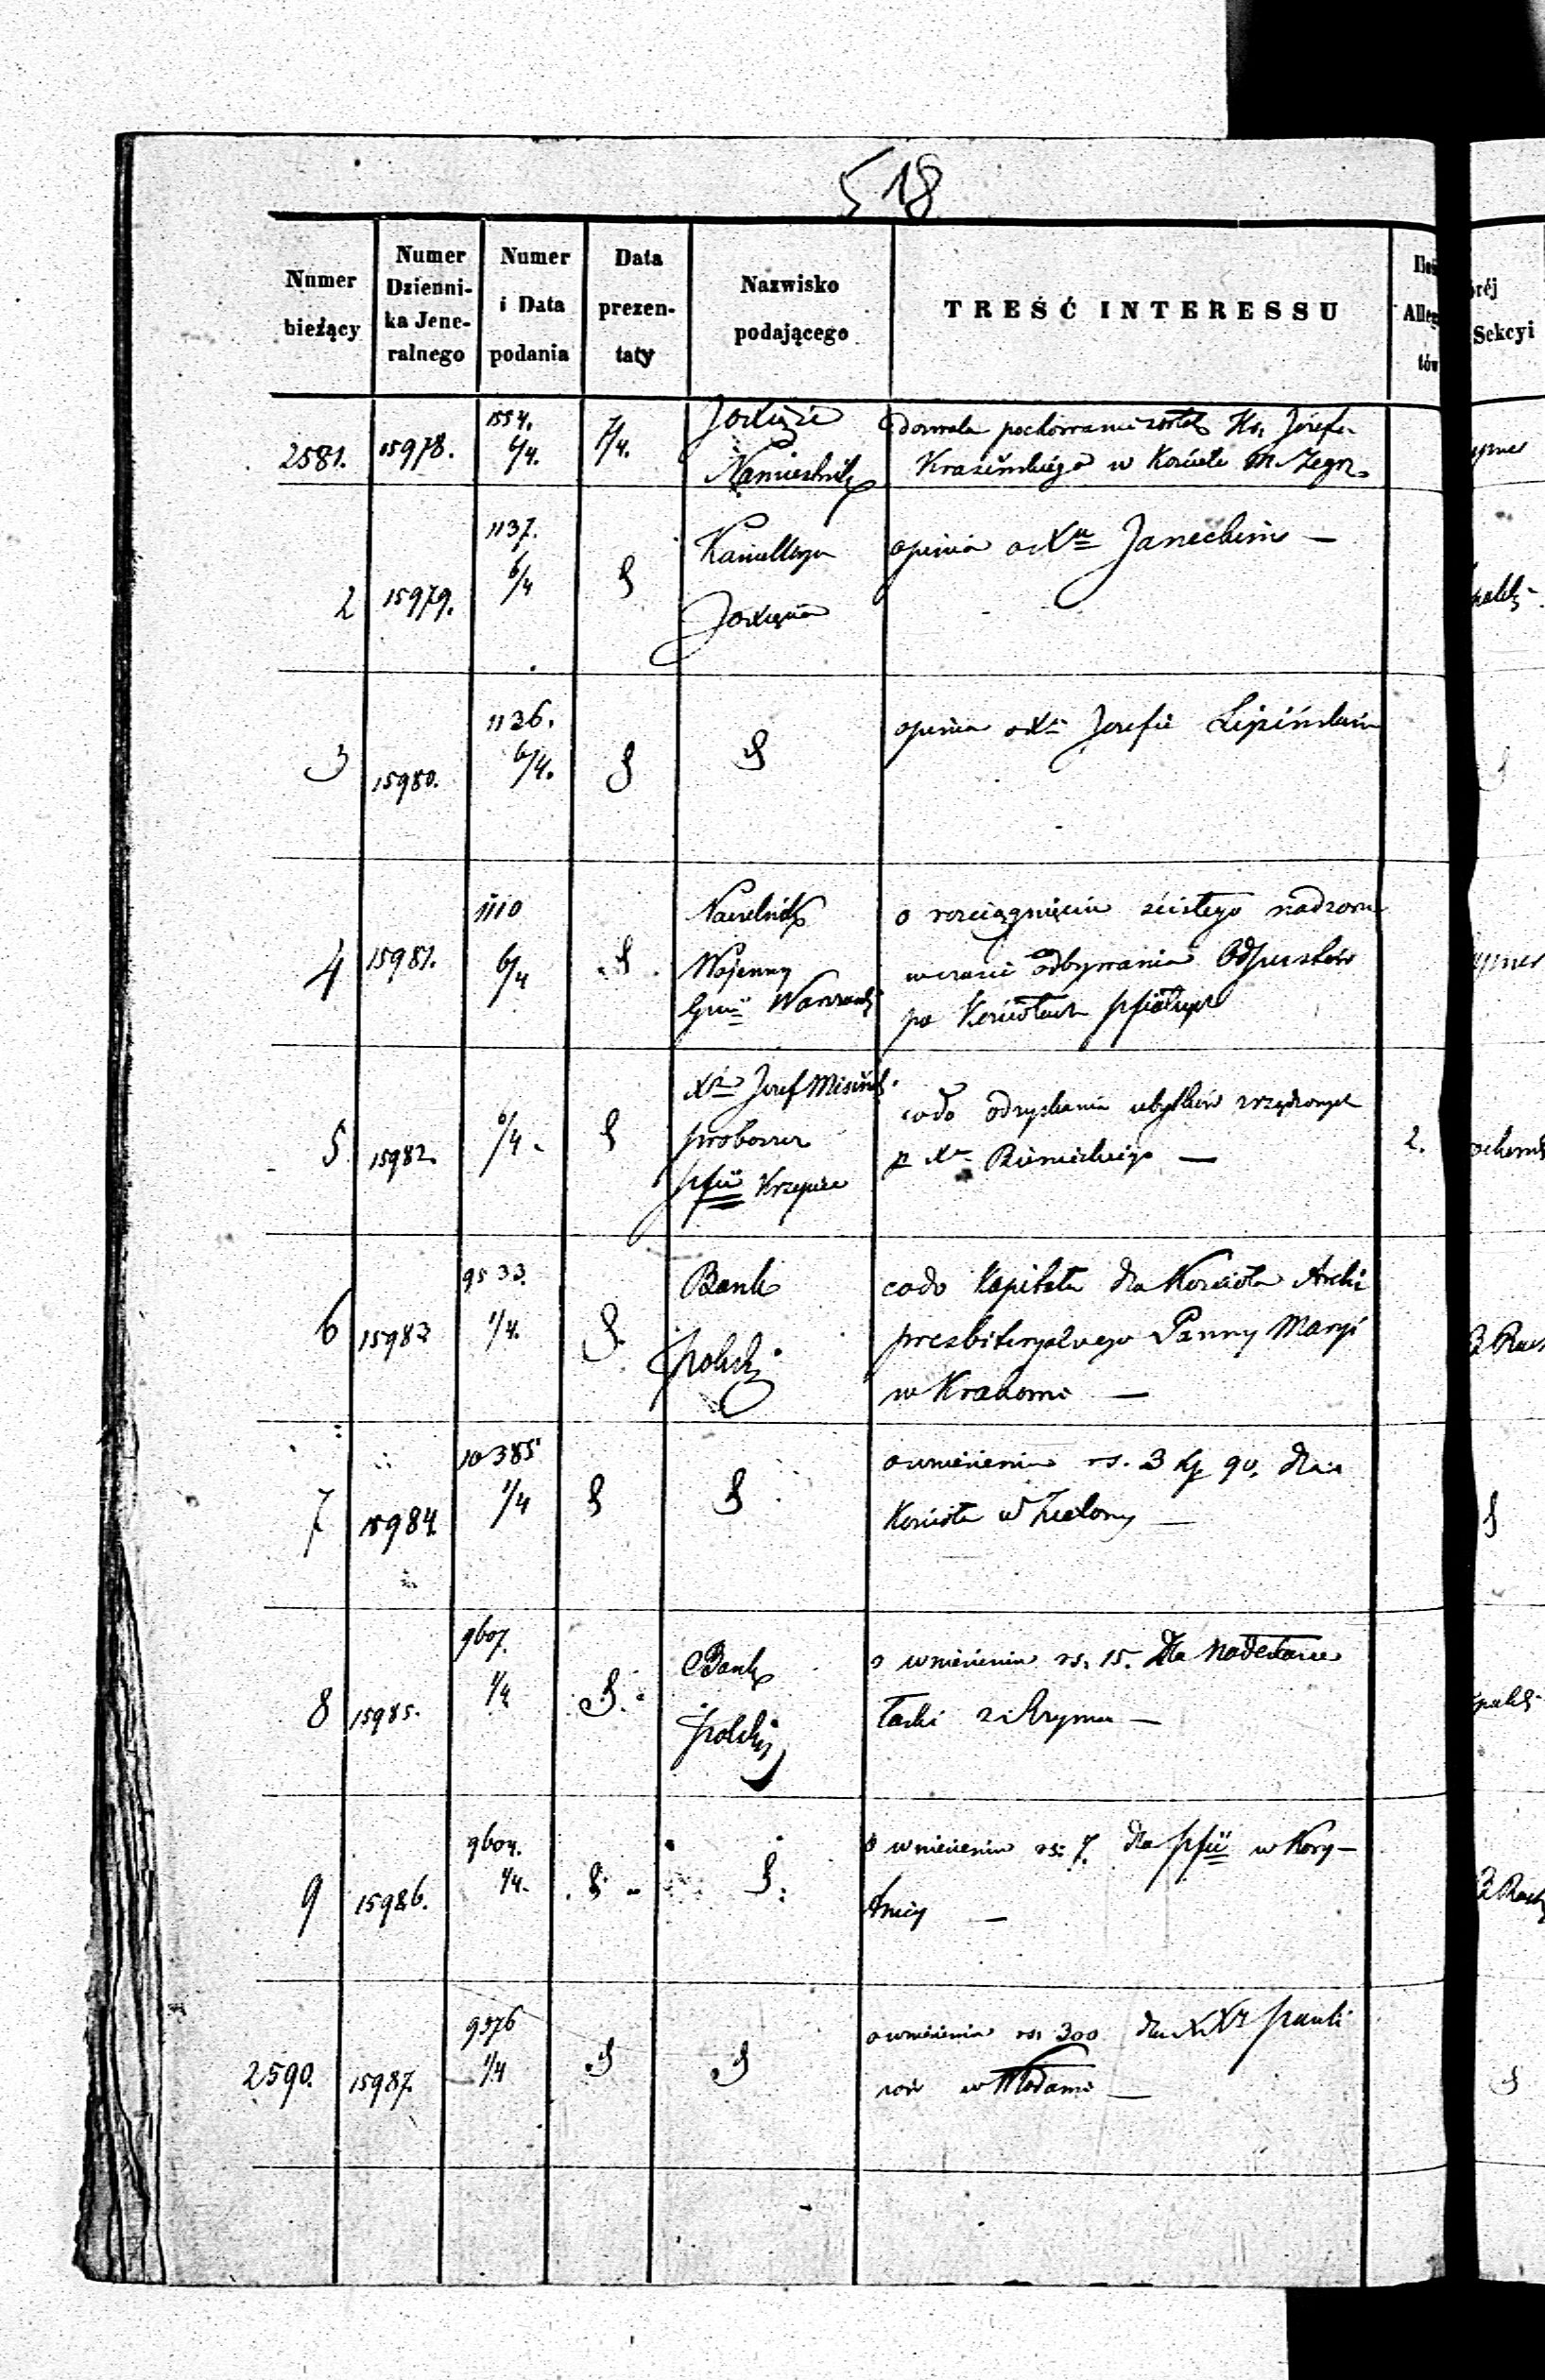 518
Numer bieżący
Numer Dzienni-ka Jene-ralnego
Numer i Data podania
Data prezen-taty
Nazwisko podającego
TREŚĆ INTERESSU
Alleg
tów
rej
Sekcyi
2581. 15978. 1554. 6/4. 7/4. JOXięże Namiestnik
dozwala pochowanie zwłok Hr. Józefa
Krasińskiego w Kościele m. Zegrz
2 15979. 1137. 6/4 Kancellarya JOXięcia
opinia o Xu Janechim —
3 15980. 1136. 6/4.
opinia o Xu Józefie Lipińskim
4 15981. 1110 6/4 Naczelnik Wojenny Gnii Warszaws
o rozciągnięciu ścisłego nadzoru
w czasie odbywania Odpustów
po Kościołach pfialnych
5 15982. 6/4. Xdz Jozef Misińs proboszcz pfii Krzepice
co do odzyskania ubytków zrządzonych
p. Xa Biernackiego — 2.
6 15983 9533. 1/4. Bank polski
co do Kapitału dla Kościoła Archi
presbiteryalnego Panny Maryi
w Krakowie —
7 15984. 10385 1/4
o wniesieniu rs. 3 k. 90. dla
Kościoła w Zielony —
8 15985. 9607. 1/4 Bank polski
o wniesieniu rs. 15. Dla
łaski z Rzymu —
9 15986. 9604. 1/4.
o wniesieniu rs. 7. dla pfii w Kory-
tnicy —
2590. 15987. 9576 1/4
o wniesieniu rs. 300 dla XXży Pauli
nów w Włodawie —